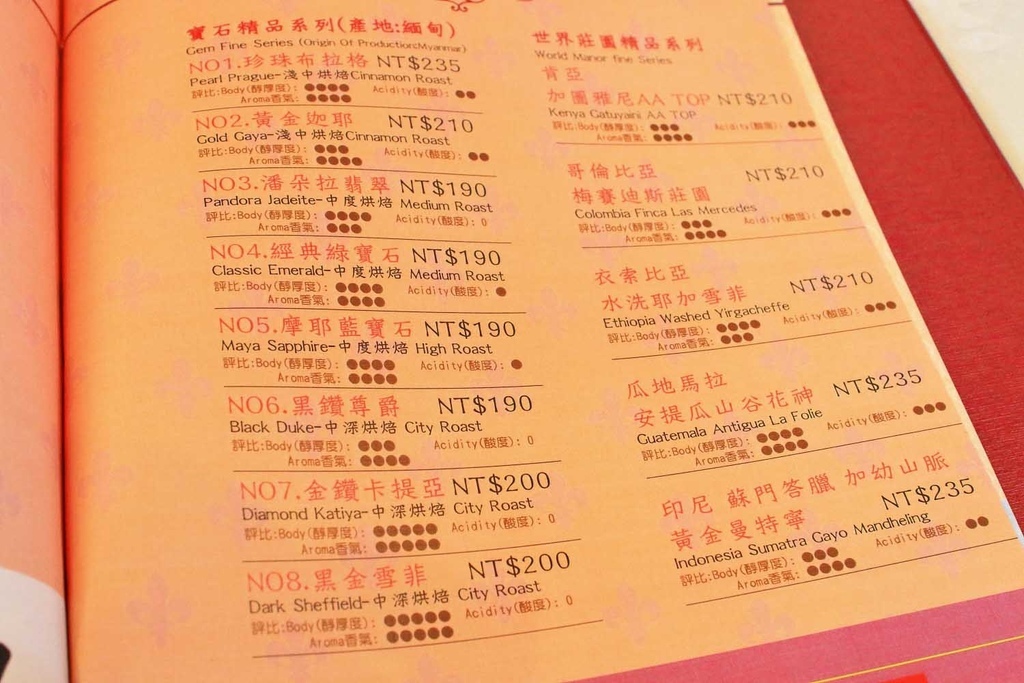 寶石精品系列(產地:緬甸)
Gem Fine Series (Origin Of Production:Myanmar)
NO1.珍珠布拉格 NT$235
Pearl Prague-淺中烘焙Cinnamon Roast
評比:Body(醇厚度): ●●●● Acidity(酸度): ●●
Aroma香氣: ●●●●
NO2.黃金迦耶 NT$210
Gold Gaya-淺中烘焙Cinnamon Roast
評比:Body(醇厚度): ●●● Acidity(酸度): ●●
Aroma香氣: ●●●●
NO3.潘朵拉翡翠 NT$190
Pandora Jadeite-中度烘焙 Medium Roast
評比:Body(醇厚度): ●●●● Acidity(酸度): 0
Aroma香氣: ●●●
NO4.經典綠寶石 NT$190
Classic Emerald-中度烘焙 Medium Roast
評比:Body(醇厚度): ●●●● Acidity(酸度): ●
Aroma香氣: ●●●●
NO5.摩耶藍寶石 NT$190
Maya Sapphire-中度烘焙 High Roast
評比:Body(醇厚度): ●●●● Acidity(酸度): ●
Aroma香氣: ●●●●
NO6.黑鑽尊爵 NT$190
Black Duke-中深烘焙 City Roast
評比:Body(醇厚度): ●●● Acidity(酸度): 0
Aroma香氣: ●●●●
NO7.金鑽卡提亞 NT$200
Diamond Katiya-中深烘焙 City Roast
評比:Body(醇厚度): ●●●●● Acidity(酸度): 0
Aroma香氣: ●●●●●
NO8.黑金雪菲 NT$200
Dark Sheffield-中深烘焙 City Roast
評比:Body(醇厚度): ●●●●● Acidity(酸度): 0
Aroma香氣: ●●●●●
世界莊園精品系列
World Manor fine Series
肯亞
加圖雅尼AA TOP NT$210
Kenya Gatuyaini AA TOP
評比:Body(醇厚度): ●●● Acidity(酸度): ●●●
Aroma香氣: ●●●●
哥倫比亞 NT$210
梅賽迪斯莊園
Colombia Finca Las Mercedes
評比:Body(醇厚度): ●●● Acidity(酸度): ●●●
Aroma香氣: ●●●●
衣索比亞
水洗耶加雪菲 NT$210
Ethiopia Washed Yirgacheffe
評比:Body(醇厚度): ●●●● Acidity(酸度): ●●●
Aroma香氣: ●●●
瓜地馬拉
安提瓜山谷花神 NT$235
Guatemala Antigua La Folie
評比:Body(醇厚度): ●●●● Acidity(酸度): ●●●
Aroma香氣: ●●●●
印尼 蘇門答臘 加幼山脈
黃金曼特寧 NT$235
Indonesia Sumatra Gayo Mandheling
評比:Body(醇厚度): ●●● Acidity(酸度): ●●
Aroma香氣: ●●●●